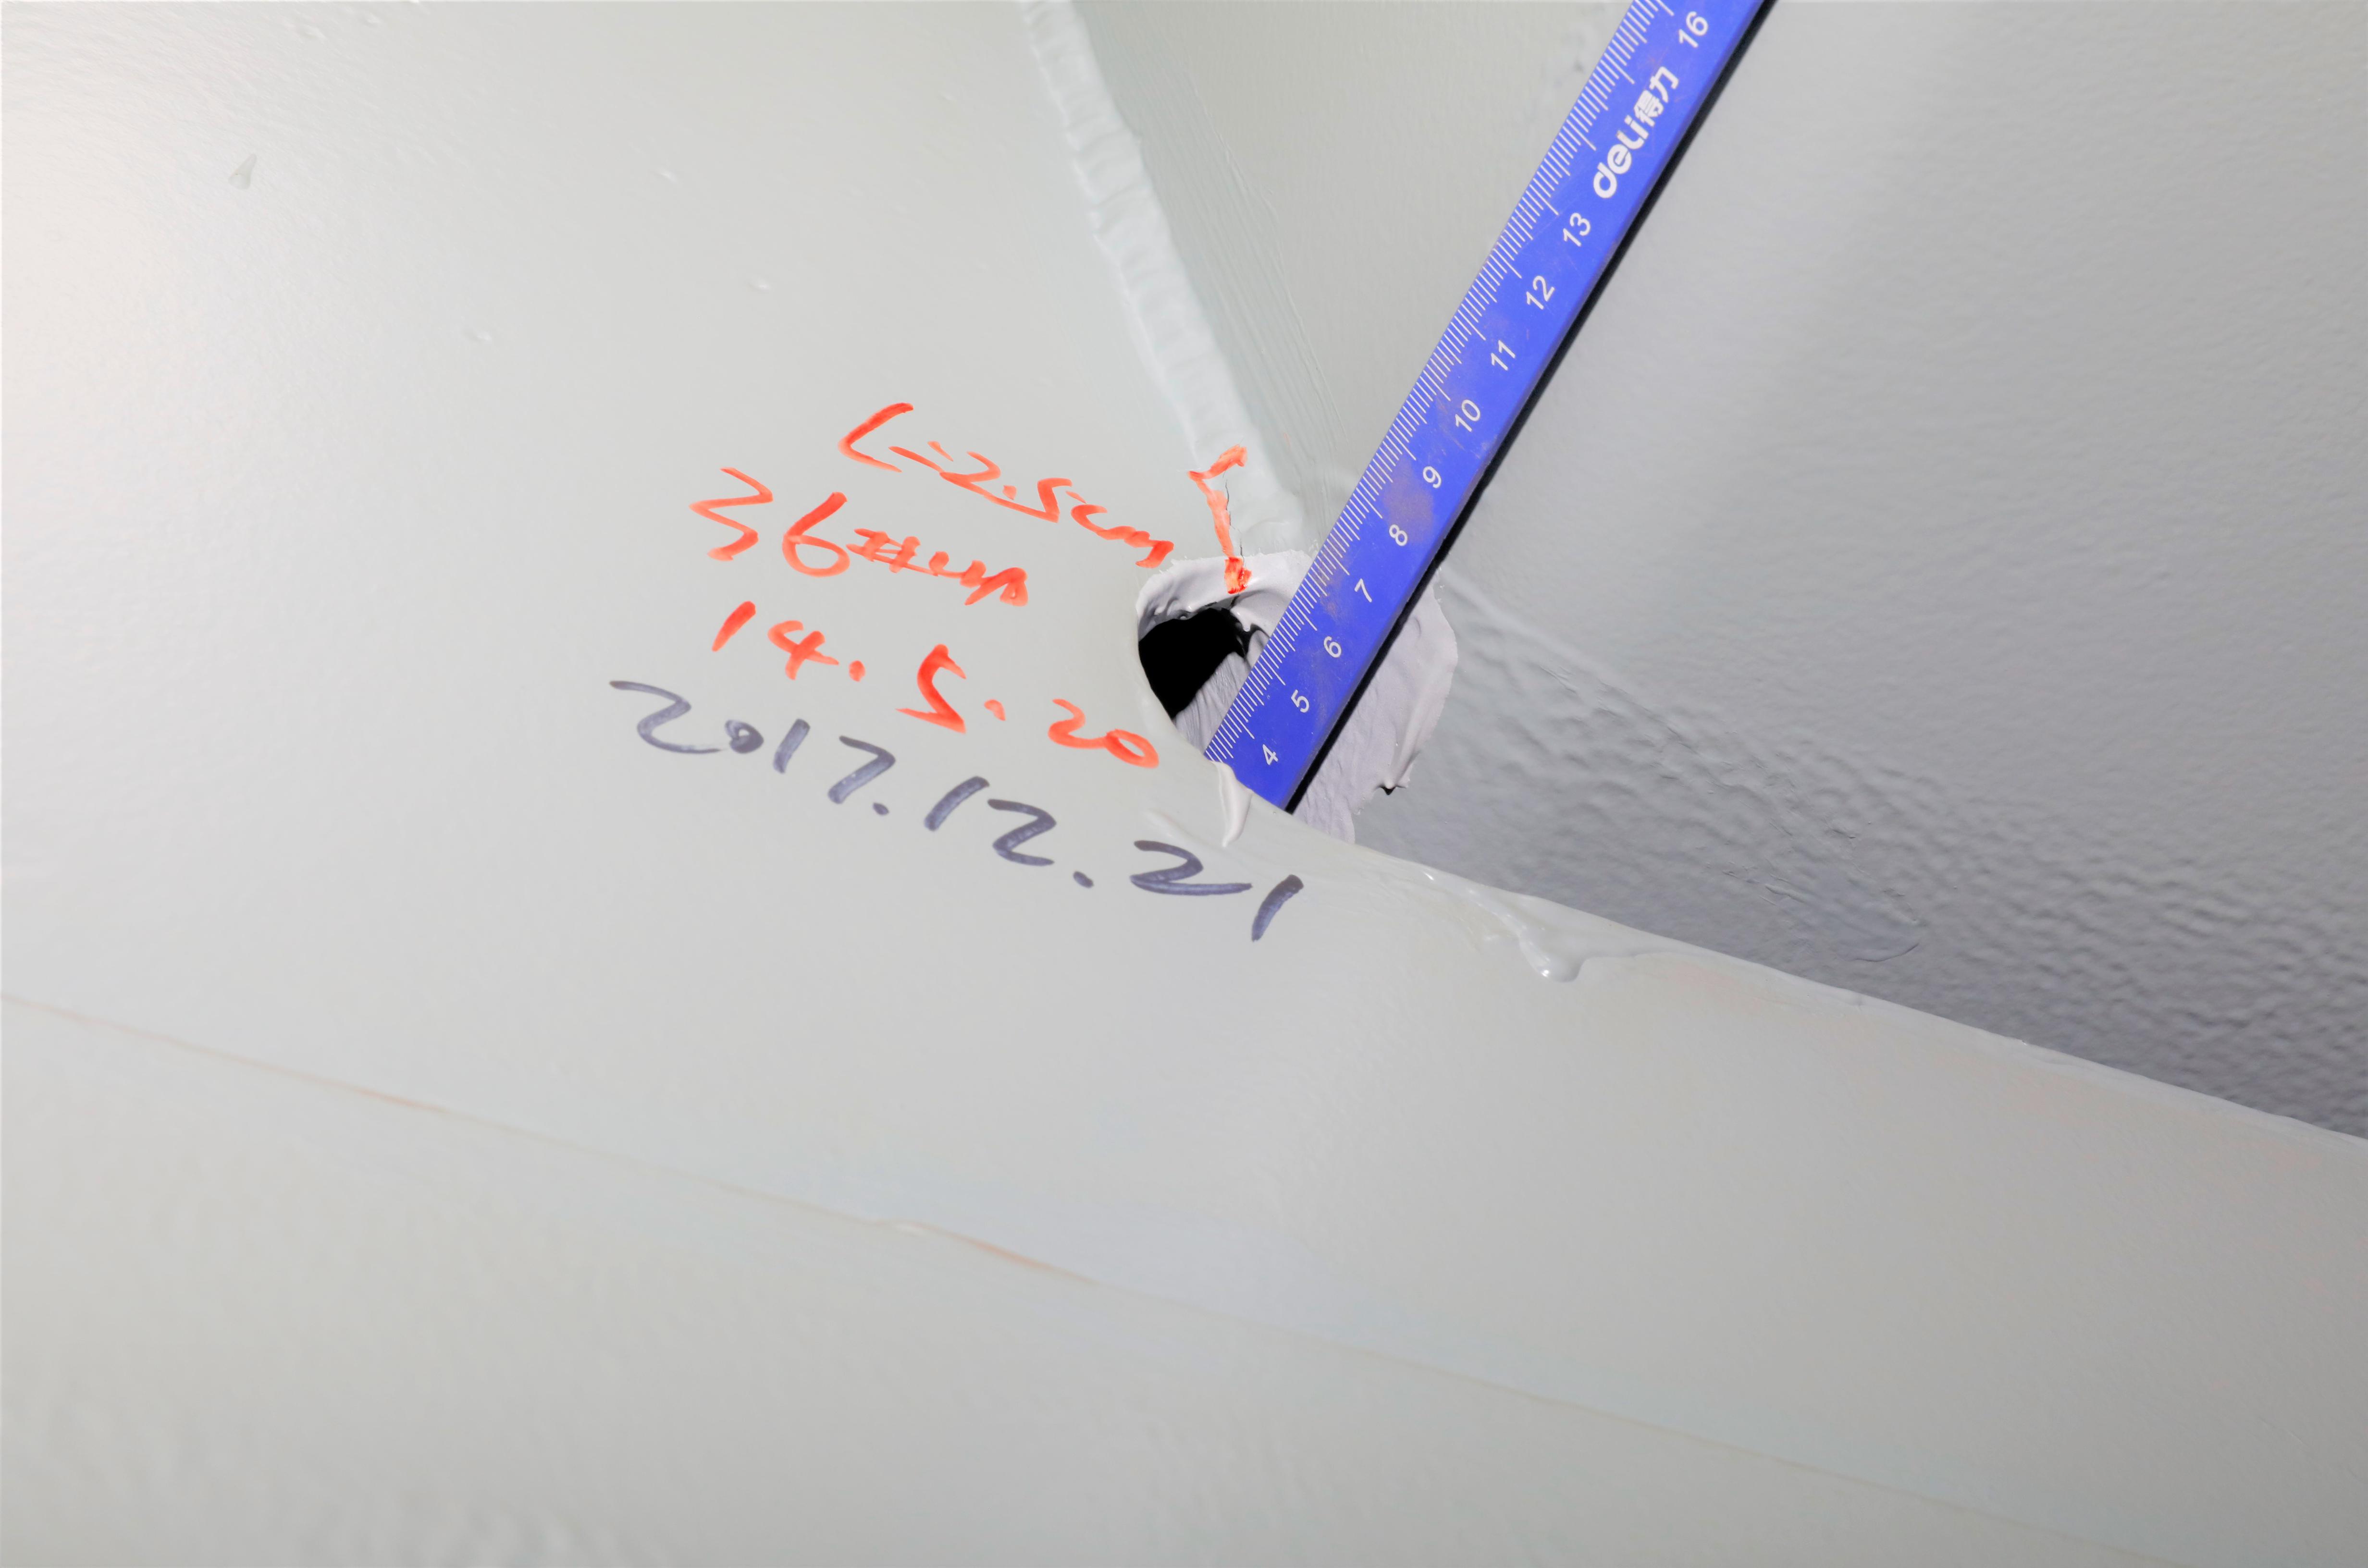 L=2.5cm
36#
14.5.20
2017.12.21
4 5 6 7 8 9 10 11 12 13 deli得力 16